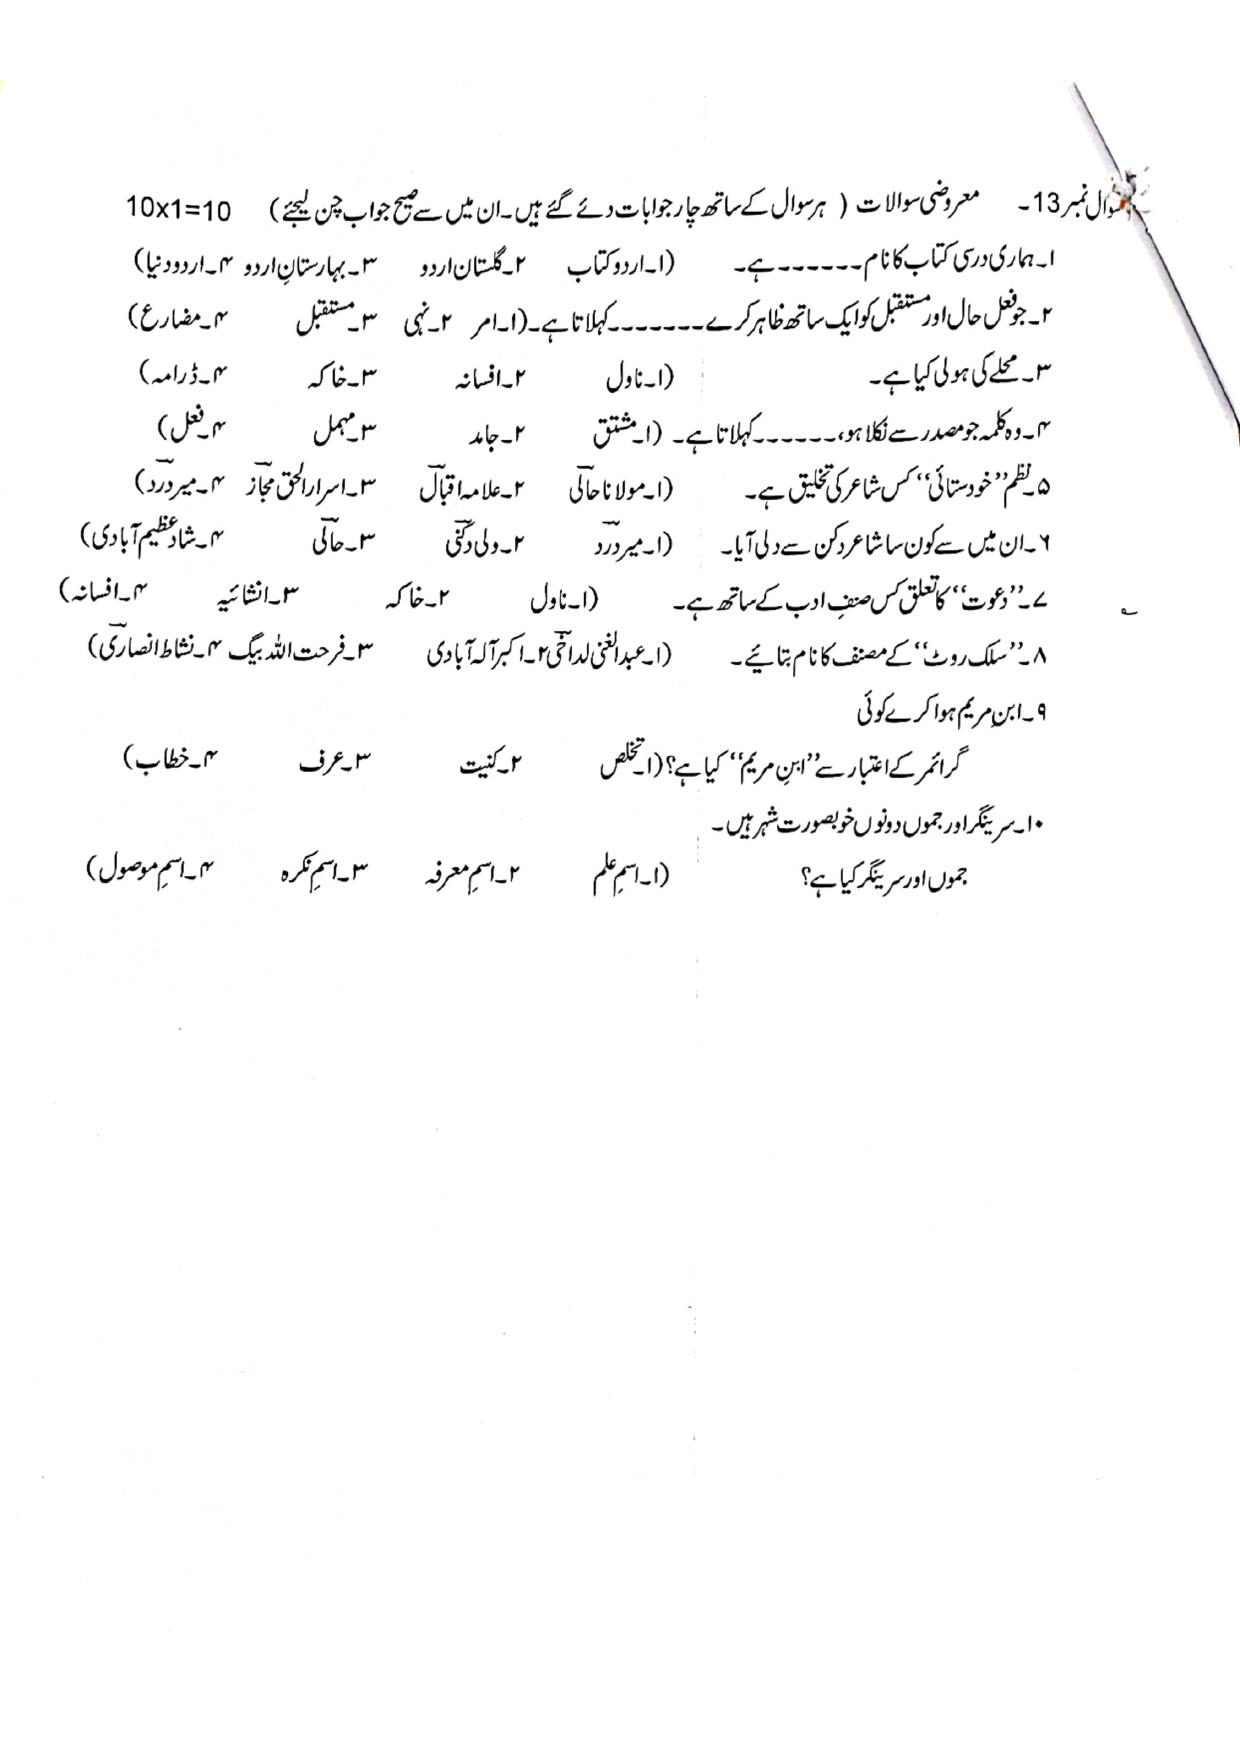 سوال نمبر 13۔ معروضی سوالات ( ہر سوال کے ساتھ چار جوابات دئے گئے ہیں۔ان میں سے صحیح جواب چن لیجئے ) 10x1=10
۱۔ہماری درسی کتاب کا نام۔۔۔۔۔۔ہے۔ (۱۔اردو کتاب ۲۔گلستان اردو ۳۔بہارستانِ اردو ۴۔اردو دنیا)
۲۔جو فعل حال اور مستقبل کو ایک ساتھ ظاہر کرے۔۔۔۔۔۔۔کہلاتا ہے۔(۱۔امر ۲۔نہی ۳۔مستقبل ۴۔مضارع)
۳۔محلے کی ہولی کیا ہے۔ (۱۔ناول ۲۔افسانہ ۳۔خاکہ ۴۔ڈرامہ)
۴۔وہ کلمہ جو مصدر سے نکلا ہو،۔۔۔۔۔۔کہلاتا ہے۔ (۱۔مشتق ۲۔جامد ۳۔مہمل ۴۔فعل)
۵۔نظم ’’خودستائی‘‘ کس شاعر کی تخلیق ہے۔ (۱۔مولانا حالؔی ۲۔علامہ اقباؔل ۳۔اسرارالحق مجاؔز ۴۔میر درؔد)
۶۔ان میں سے کون سا شاعر دکن سے دلی آیا۔ (۱۔میر درؔد ۲۔ولی دکنؔی ۳۔حالؔی ۴۔شاد عظیم آبادی)
۷۔’’دعوت‘‘ کا تعلق کس صنفِ ادب کے ساتھ ہے۔ (۱۔ناول ۲۔خاکہ ۳۔انشائیہ ۴۔افسانہ)
۸۔’’سلک روٹ‘‘ کے مصنف کا نام بتائیے۔ (۱۔عبدالغنی لداخؔی ۲۔اکبر آلہ آبادی ۳۔فرحت اللہ بیگ ۴۔نشاط انصارؔی)
۹۔ابنِ مریم ہوا کرے کوئی
گرائمر کے اعتبار سے ’’ابنِ مریم‘‘ کیا ہے؟ (۱۔تخلص ۲۔کنیت ۳۔عرف ۴۔خطاب)
۱۰۔سرینگر اور جموں دونوں خوبصورت شہر ہیں۔
جموں اور سرینگر کیا ہے؟ (۱۔اسمِ علم ۲۔اسمِ معرفہ ۳۔اسمِ نکرہ ۴۔اسمِ موصول)